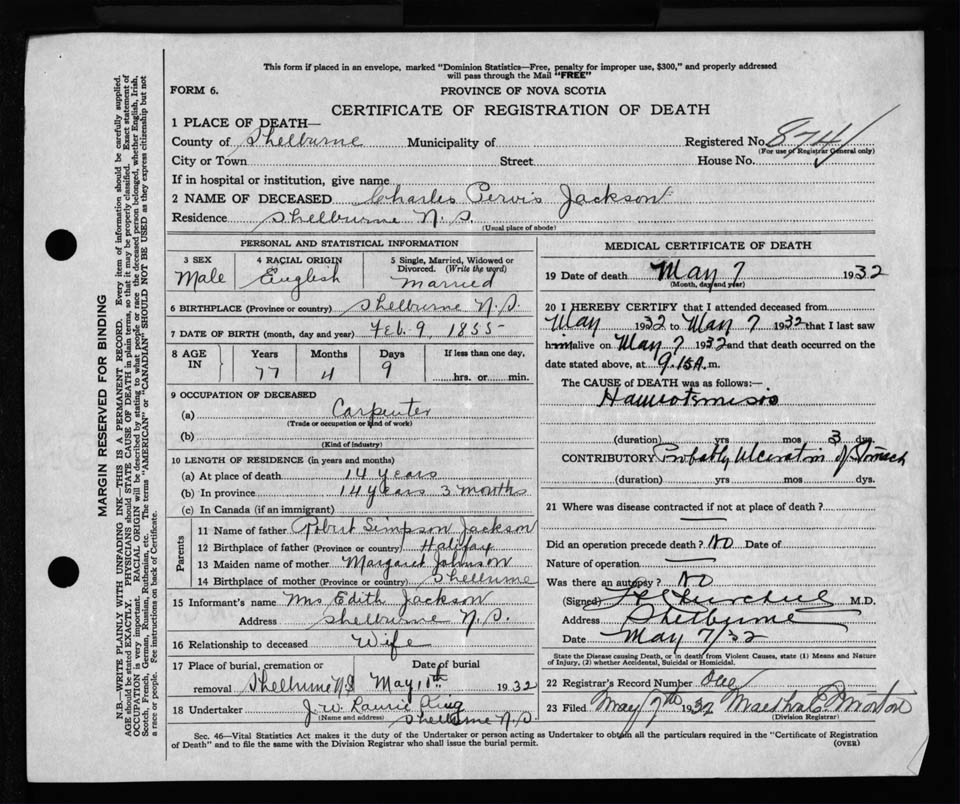 This form if placed in an envelope, marked "Dominion Statistics—Free, penalty for improper use, $300," and properly addressed
will pass through the Mail "FREE"
FORM 6.
PROVINCE OF NOVA SCOTIA
CERTIFICATE OF REGISTRATION OF DEATH
1 PLACE OF DEATH—
County of Shelburne Municipality of Registered No. 874
(For use of Registrar General only)
City or Town Street House No.
If in hospital or institution, give name
2 NAME OF DECEASED Charles Pervis Jackson
Residence Shelburne N.S.
(Usual place of abode)
PERSONAL AND STATISTICAL INFORMATION
3 SEX 4 RACIAL ORIGIN 5 Single, Married, Widowed or
Divorced. (Write the word)
Male English Married
6 BIRTHPLACE (Province or country) Shelburne N.S.
7 DATE OF BIRTH (month, day and year) Feb. 9, 1855
8 AGE IN Years Months Days If less than one day,
77 4 9 hrs. or min.
9 OCCUPATION OF DECEASED
(a) Carpenter
(Trade or occupation or kind of work)
(b)
(Kind of industry)
10 LENGTH OF RESIDENCE (in years and months)
(a) At place of death 14 years
(b) In province 14 years 3 months
(c) In Canada (if an immigrant)
Parents
11 Name of father Robert Simpson Jackson
12 Birthplace of father (Province or country) Halifax
13 Maiden name of mother Margaret Johnson
14 Birthplace of mother (Province or country) Shelburne
15 Informant's name Mrs Edith Jackson
Address Shelburne N.S.
16 Relationship to deceased Wife
17 Place of burial, cremation or Date of burial
removal Shelburne N.S May 10th 1932
18 Undertaker J. W. Laurie King
(Name and address) Shelburne N.S.
MEDICAL CERTIFICATE OF DEATH
19 Date of death May 7 1932
(Month, day and year)
20 I HEREBY CERTIFY that I attended deceased from
May 1932 to May 7 1932 that I last saw
him alive on May 7 1932 and that death occurred on the
date stated above, at 9.15 A. m.
The CAUSE of DEATH was as follows:—
Haemotemisis
(duration) yrs mos 3 dys.
CONTRIBUTORY Probably Ulceration of Stomach
(duration) yrs. mos. dys.
21 Where was disease contracted if not at place of death?
Did an operation precede death? No Date of
Nature of operation
Was there an autopsy? No
(Signed) Churchill M.D.
Address Shelburne
Date May 7/32
State the Disease causing Death, or in death from Violent Causes, state (1) Means and Nature
of Injury, (2) whether Accidental, Suicidal or Homicidal.
22 Registrar's Record Number One
23 Filed May 7th 1932 Martha E Morton
(Division Registrar)
Sec. 46—Vital Statistics Act makes it the duty of the Undertaker or person acting as Undertaker to obtain all the particulars required in the "Certificate of Registration
of Death" and to file the same with the Division Registrar who shall issue the burial permit.
(OVER)
MARGIN RESERVED FOR BINDING
N.B.—WRITE PLAINLY WITH UNFADING INK—THIS IS A PERMANENT RECORD. Every item of information should be carefully supplied.
AGE should be stated EXACTLY. PHYSICIANS should STATE CAUSE OF DEATH in plain terms, so that it may be properly classified. Exact statement of
OCCUPATION is very important. RACIAL ORIGIN will be described by stating to what people or race the deceased person belonged, whether English, Irish,
Scotch, French, German, Russian, Ruthenian, etc. The terms "AMERICAN" or "CANADIAN" SHOULD NOT BE USED as they express citizenship but not
a race or people. See instructions on back of Certificate.